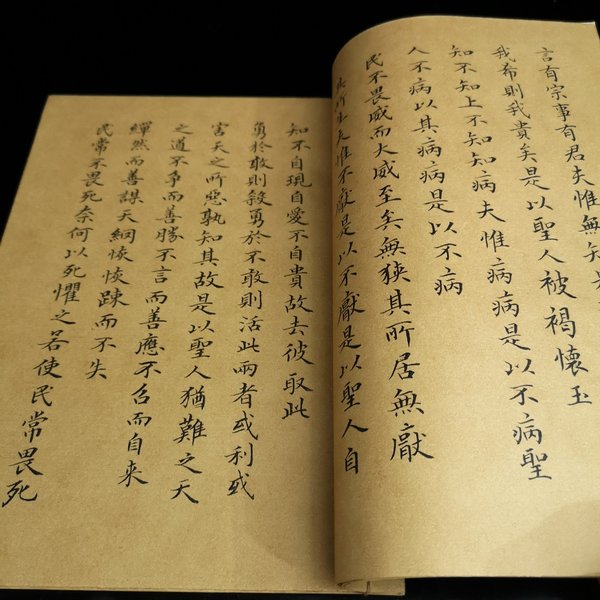 言有宗事有君夫惟無知
我希則我貴矣是以聖人被褐懷玉
知不知上不知知病夫惟病病是以不病聖
人不病以其病病是以不病
民不畏威而大威至矣無狹其所居無厭
其所生夫惟不厭是以不厭是以聖人自
知不自現自愛不自貴故去彼取此
勇於敢則殺勇於不敢則活此兩者或利或
害天之所惡孰知其故是以聖人猶難之天
之道不爭而善勝不言而善應不召而自來
繟然而善謀天網恢恢踈而不失
民常不畏死奈何以死懼之若使民常畏死